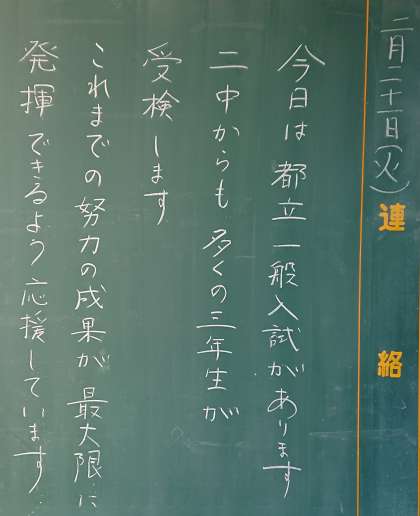 二月二十一日(火)
連絡
今日は都立一般入試があります
二中からも多くの三年生が
受検します
これまでの努力の成果が最大限に
発揮できるよう応援しています